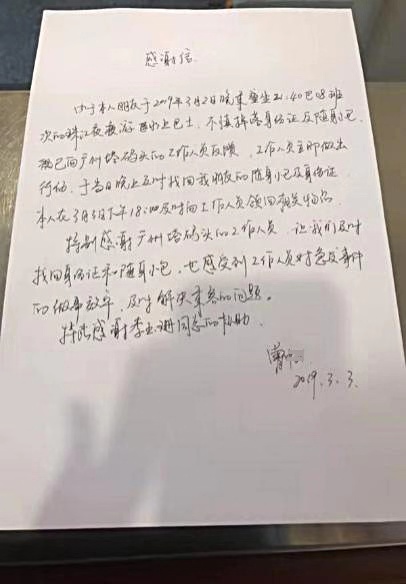 感谢信
由于本人朋友于2019年3月2日晚乘坐21:40巴08班
次的珠江夜游水上巴士，不慎掉落身份证及随身小包，
就已向广州塔码头的工作人员反映，工作人员立即做出
行动，于当日晚上及时找回我朋友的随身小包及身份证
本人在3月3日下午18:00及时向工作人员领回相关物品
特别感谢广州塔码头的工作人员，让我们及时
找回身份证和随身小包，也感受到工作人员对急发事件
的做事效率，及时解决乘客的问题。
特此感谢李玉珊同志的协助．
曾
2019.3.3.